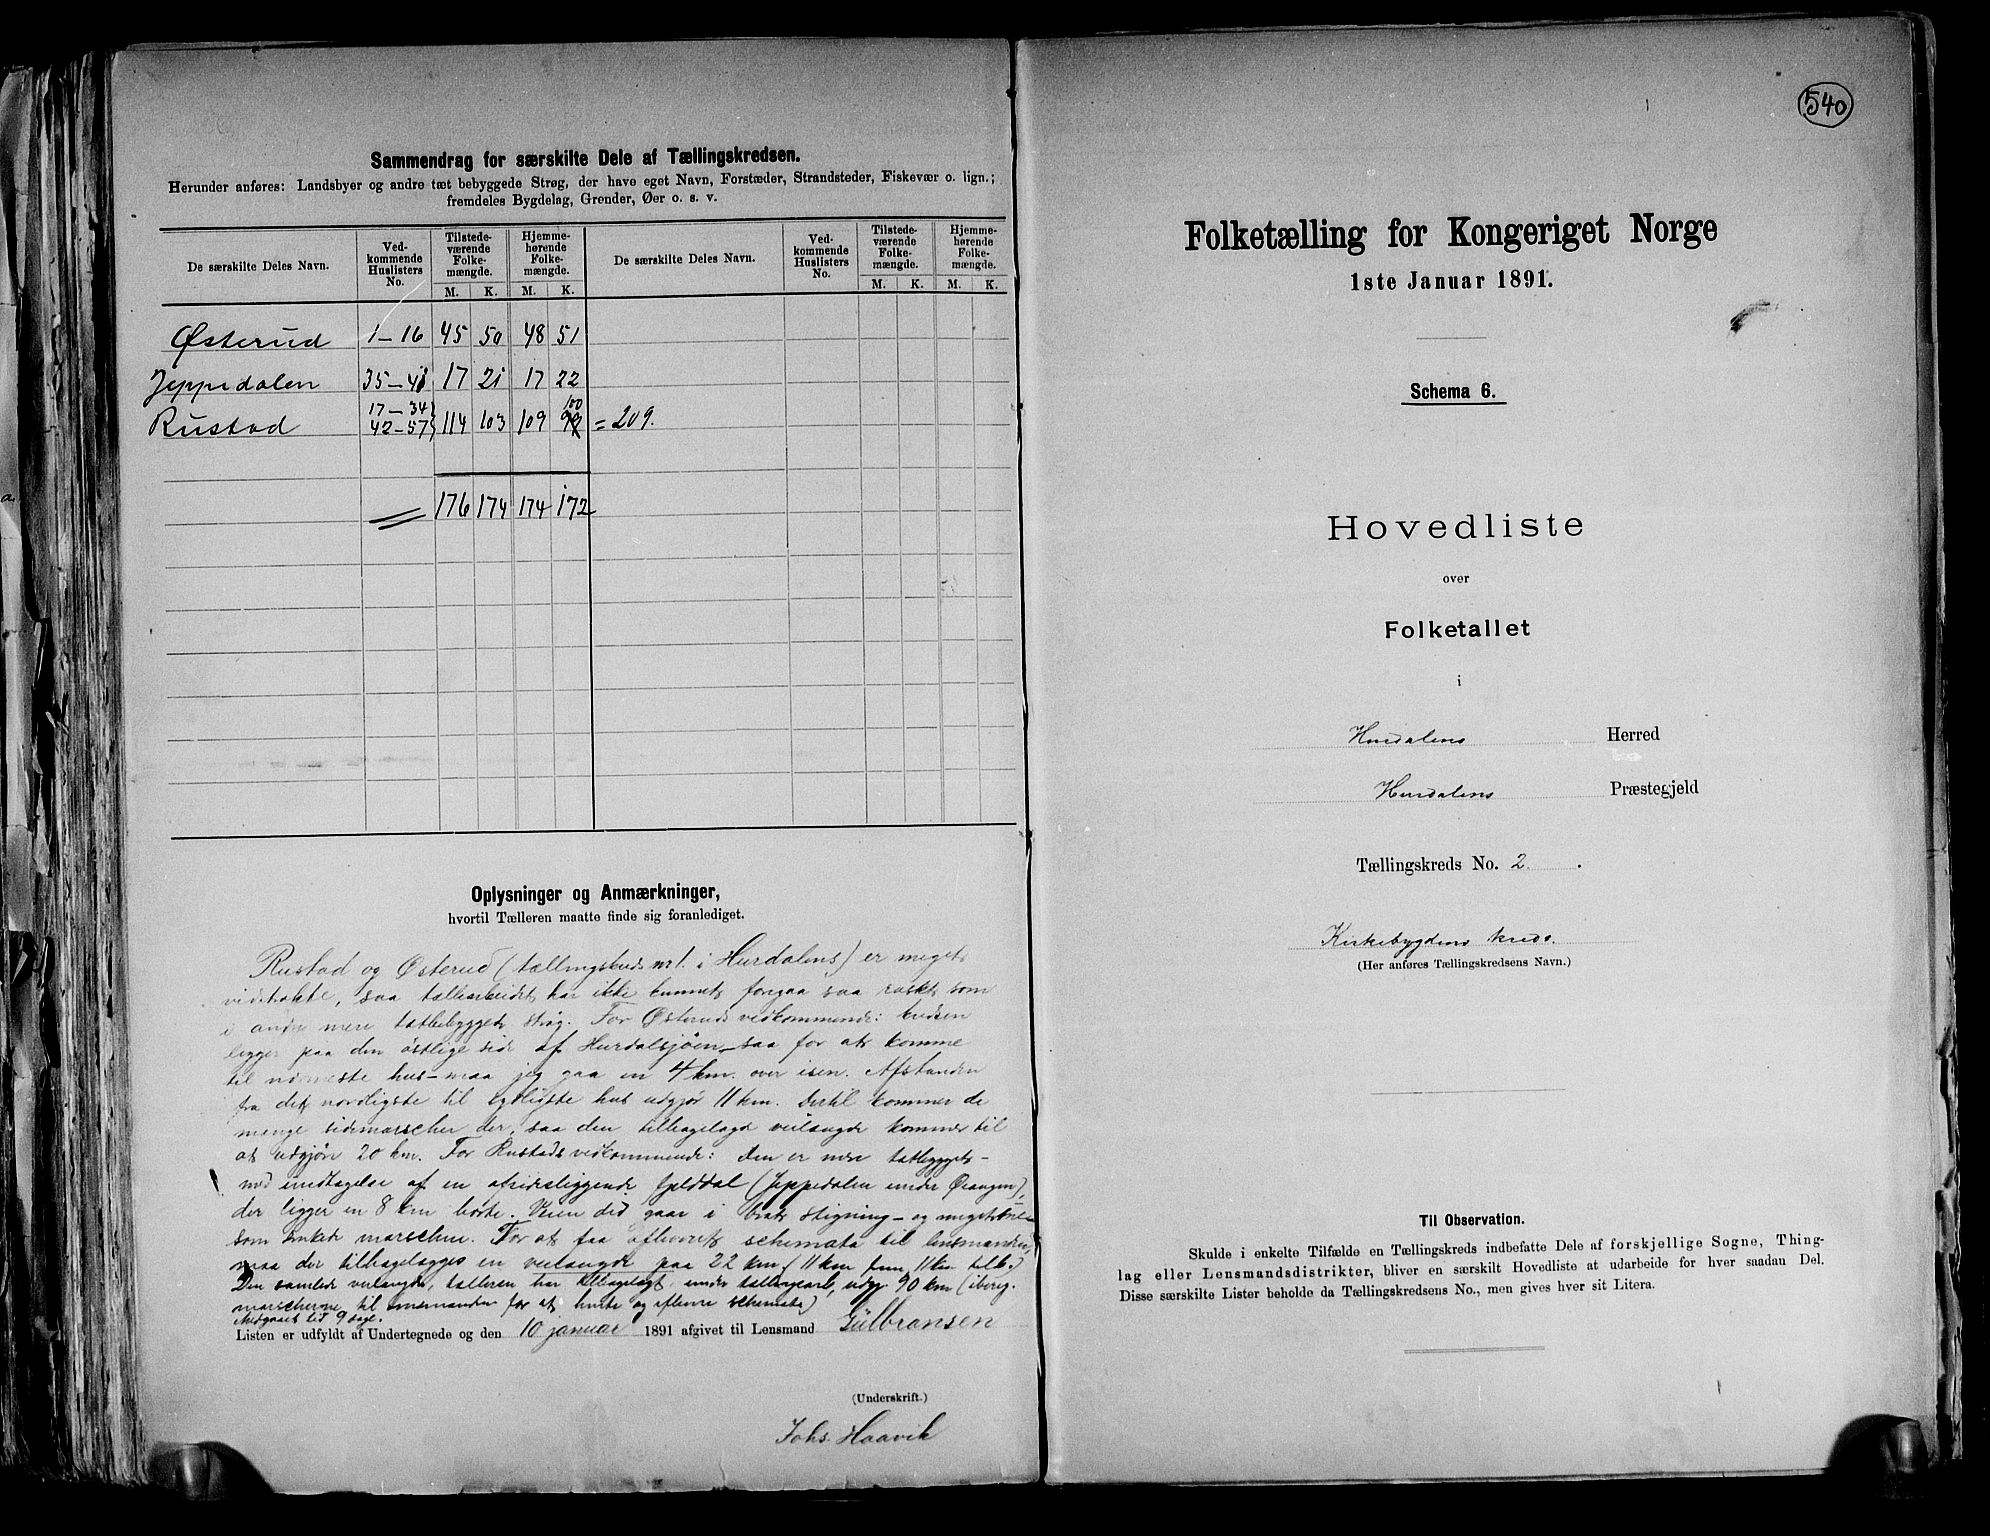 Sammendrag for særskilte Dele af Tællingskredsen.
Herunder anføres: Landsbyer og andre tæt bebyggede Strøg, der have eget Navn, Forstæder, Strandsteder, Fiskevær o. lign.;
fremdeles Bygdelag, Grender, Øer o. s. v.
De særskilte Deles Navn. Ved-kommende Huslisters No. Tilstede-værende Folke-mængde. Hjemme-hørende Folke-mængde. De særskilte Deles Navn. Ved-kommende Huslisters No. Tilstede-værende Folke-mængde. Hjemme-hørende Folke-mængde.
M. K. M. K. M. K. M. K.
Østerud 1-16 45 50 48 51
Jeppedalen 35-41 17 21 17 22
17-34
Rustad 42-57 114 103 109 100 = 209.
176 174 174 172
Oplysninger og Anmærkninger,
hvortil Tælleren maatte finde sig foranlediget.
Rustad og Østerud (tællingskreds nr 1. i Hurdalens) er meget
vidstrakte, saa tællearbeidet har ikke kunnet forgaa saa raskt som
i andre mere tætbebyggede strøg. For Østeruds vedkommende: kredsen
ligger paa den østlige side af Hurdalsjøen, saa for at komme
til nærmeste hus - maa jeg gaa en 4 km. over isen. Afstanden
fra det nordligste til sydligste hus udgjør 11 km. Dertil kommer de
mange sidemarscher der, saa den tilbagelagte veilængde kommer til
at udgjøre 20 km. For Rustads vedkommende: Den er mere tætbygget -
med undtagelse af en afsidesliggende fjelddal (Jeppedalen under Ørangen),
der ligger en 8 km borte. Veien did gaar i brat stigning - og
som enkelt marschen. For at faa afleveret schemata til lensmanden,
maa der tilbagelægges en veilængde paa 22 km. (11 km frem, 11 km tilb.)
Den samlede veilængde, tælleren har tilbagelagt under tællingen, udgjør 90 km (iberegn.
marscherne til lensmanden for at hente og aflevere schemata)
Medgaaet tid 9 dage.
Listen er udfyldt af Undertegnede og den 10 januar 1891 afgivet til Lensmand Gulbransen
(Underskrift.)
Johs. Haavik
540
Folketælling for Kongeriget Norge
1ste Januar 1891.
Schema 6.
Hovedliste
over
Folketallet
i
Hurdalens Herred
Hurdalens Præstegjeld
Tællingskreds No. 2.
Kirkebygdens kreds.
(Her anføres Tællingskredsens Navn.)
Til Observation.
Skulde i enkelte Tilfælde en Tællingskreds indbefatte Dele af forskjellige Sogne, Thing-
lag eller Lensmandsdistrikter, bliver en særskilt Hovedliste at udarbeide for hver saadan Del.
Disse særskilte Lister beholde da Tællingskredsens No., men gives hver sit Litera.